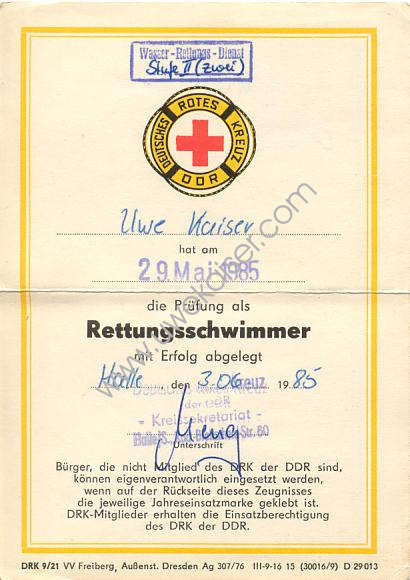 Wasser-Rettungs-Dienst
Stufe II (zwei)
DEUTSCHES ROTES KREUZ
DDR
Uwe Kaiser
hat am
29. Mai 1985
die Prüfung als
Rettungsschwimmer
mit Erfolg abgelegt
Halle, den 3.06. 1985
Deutsches Rotes Kreuz
der DDR
- Kreissekretariat -
Halle/S., Str. 60
Unterschrift
Bürger, die nicht Mitglied des DRK der DDR sind,
können eigenverantwortlich eingesetzt werden,
wenn auf der Rückseite dieses Zeugnisses
die jeweilige Jahreseinsatzmarke geklebt ist.
DRK-Mitglieder erhalten die Einsatzberechtigung
des DRK der DDR.
DRK 9/21 VV Freiberg, Außenst. Dresden Ag 307/76 III-9-16 15 (30016/9) D 29 013
www.uwekaiser.com